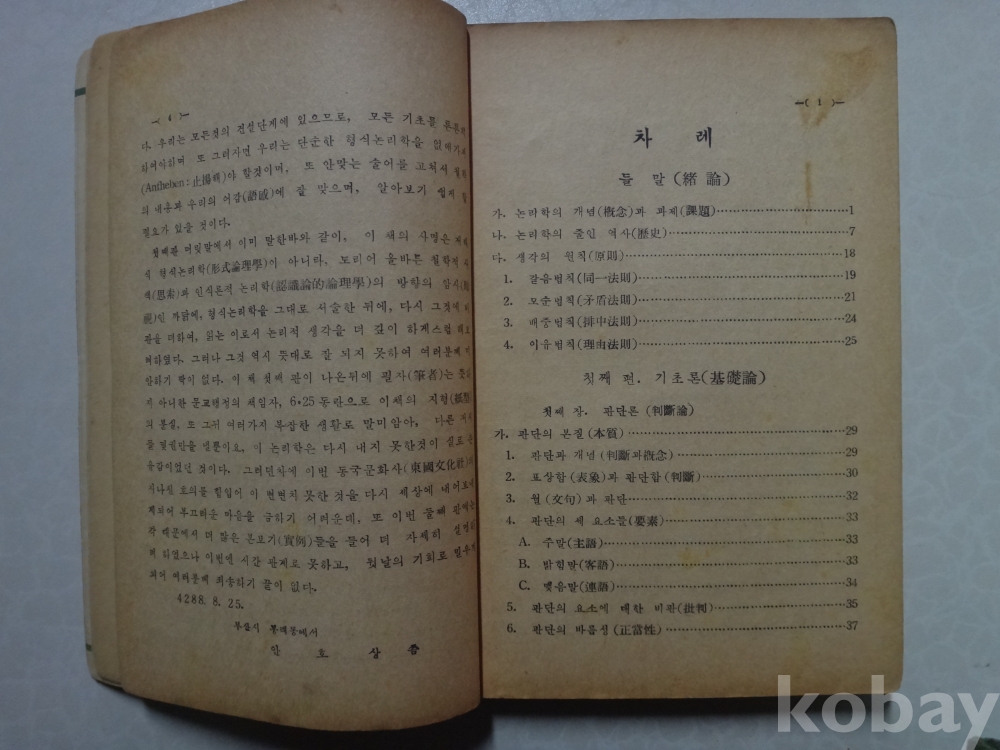 —( 4 )—
다. 우리는 모든것의 건설단계에 있으므로, 모든 기초를 튼튼히
하여야하며 또 그러자면 우리는 단순한 형식논리학을 없애가
(Aufheben: 止揚)야 할것이며, 또 안맞는 술어를 고쳐서 될
의 내용과 우리의 어감(語感)에 잘 맞으며, 알아보기 쉽게 할
필요가 있을 것이다.
첫째판 머릿말에서 이미 말한바와 같이, 이 책의 사명은 지
식 형식논리학(形式論理學)이 아니라, 도리어 올바른 철학적 사
색(思索)과 인식론적 논리학(認識論的論理學)의 방향의 암시
인 까닭에, 형식논리학을 그대로 서술한 뒤에, 다시 그것에 비
판을 더하여, 읽는 이로서 논리적 생각을 더 깊이 하게스럽
려하였다. 그러나 그것 역시 뜻대로 잘 되지 못하여 여러분께 미
안하기 짝이 없다. 이 책 첫째 판이 나온뒤에 필자(筆者)는 뜻하
지 아니한 문교행정의 책임자, 6·25 동란으로 이책의 지형(紙型)
의 분실, 또 그뒤 여러가지 복잡한 생활로 말미암아, 다른 저서
들 몇권만을 냈뿐이요, 이 논리학은 다시 내지 못한것이 실로
유감이었던 것이다. 그러던차에 이번 동국문화사(東國文化社)의
지나친 호의를 힘입어 이 변변치 못한 것을 다시 세상에 내어놓
게되어 부끄러운 마음을 금하기 어려운데, 또 이번 둘째 판에는
각 대문에서 더 많은 본보기(實例)들을 들어 더 자세히 설명하
려 하였으나 이번엔 시간 관계로 못하고, 뒷날의 기회로 밀우게
되어 여러분께 죄송하기 끝이 없다.
4288. 8. 25.
부산시 동래동에서
안 호 상 씀
—( 1 )—
차 례
들 말 (緖 論)
가. 논리학의 개념(槪念)과 과제(課題)……1
나. 논리학의 줄인 역사(歷史)……7
다. 생각의 원칙(原則)……18
1. 같음법칙(同一法則)……19
2. 모순법칙(矛盾法則)……21
3. 배중법칙(排中法則)……24
4. 이유법칙(理由法則)……25
첫째 편. 기초론(基礎論)
첫째 장. 판단론 (判斷論)
가. 판단의 본질(本質)……29
1. 판단과 개념(判斷과槪念)……29
2. 표상함(表象)과 판단함(判斷)……30
3. 월(文句)과 판단……32
4. 판단의 세 요소들(要素)……33
A. 주말(主語)……33
B. 밝힘말(客語)……33
C. 맺음말(連語)……34
5. 판단의 요소에 대한 비판(批判)……35
6. 판단의 바름성(正當性)……37
kobay